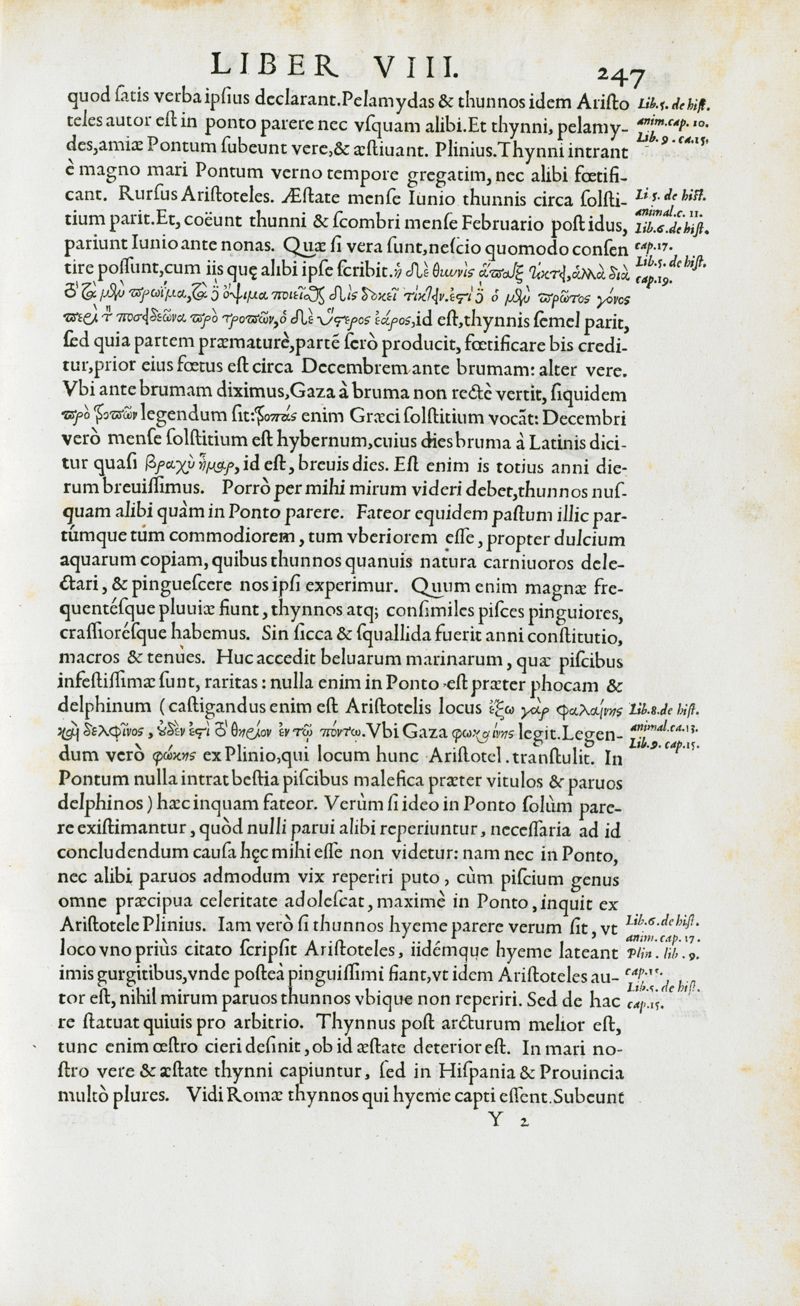 LIBER VIII. 247
quod ſatis verba ipſius declarant. Pelamydas & thunnos idem Ariſto Lib.5. de hiſt.
teles autor eſt in ponto parere nec vſquam alibi. Et thynni, pelamy- anim.cap. 10.
des, amiæ Pontum ſubeunt vere, & æſtiuant. Plinius. Thynni intrant Lib. 9. ca.15.
è magno mari Pontum verno tempore gregatim, nec alibi fœtifi-
cant. Rurſus Ariſtoteles. Æſtate menſe Iunio thunnis circa ſolſti- Li 5. de hiſt.
tium parit. Et, coëunt thunni & ſcombri menſe Februario poſt idus, animal.c. 11. lib.6.de hiſt.
pariunt Iunio ante nonas. Quæ ſi vera ſunt, neſcio quomodo conſen cap.17.
tire poſſunt, cum iis quę alibi ipſe ſcribit. ἡ δὲ θωνὶς ἅπαξ τίκτει, ἀλλὰ διὰ Lib.5. de hiſt. cap.19.
τὸ τὰ μὲν πρωίμα, τὰ δὲ ὄψιμα ποιεῖσθαι δὶς δοκεῖ τίκτειν. ἐστὶ δὲ ὁ μὲν πρῶτος γόνος
περὶ τὸν ποσειδεῶνα πρὸ τροπῶν, ὁ δὲ ὕστερος ἐάρος, id eſt, thynnis ſemel parit,
ſed quia partem præmaturè, partē ſerò producit, fœtificare bis credi-
tur, prior eius fœtus eſt circa Decembrem ante brumam: alter vere.
Vbi ante brumam diximus, Gaza à bruma non rectè vertit, ſiquidem
πρὸ τροπῶν legendum ſit: τροπάς enim Græci ſolſtitium vocāt: Decembri
verò menſe ſolſtitium eſt hybernum, cuius dies bruma à Latinis dici-
tur quaſi βραχὺ ἦμαρ, id eſt, breuis dies. Eſt enim is totius anni die-
rum breuiſſimus. Porrò per mihi mirum videri debet, thunnos nuſ-
quam alibi quàm in Ponto parere. Fateor equidem paſtum illic par-
túmque túm commodiorem, tum vberiorem eſſe, propter dulcium
aquarum copiam, quibus thunnos quanuis natura carniuoros dele-
ctari, & pingueſcere nos ipſi experimur. Quum enim magnæ fre-
quentéſque pluuiæ fiunt, thynnos atq; conſimiles piſces pinguiores,
craſſioréſque habemus. Sin ſicca & ſquallida fuerit anni conſtitutio,
macros & tenues. Huc accedit beluarum marinarum, quæ piſcibus
infeſtiſſimæ ſunt, raritas: nulla enim in Ponto eſt præter phocam &
delphinum (caſtigandus enim eſt Ariſtotelis locus ἔξω γὰρ φαλαίνης Lib.8.de hiſt.
καὶ δελφῖνος, οὐδὲν ἐστὶ τὸ θηρίον ἐν τῷ πόντῳ. Vbi Gaza φωκαίνης legit. Legen- animal.ca.13.
dum verò φώκης ex Plinio, qui locum hunc Ariſtotel. tranſtulit. In Lib.9. cap.15.
Pontum nulla intrat beſtia piſcibus malefica præter vitulos & paruos
delphinos) hæc inquam fateor. Verùm ſi ideo in Ponto ſolùm pare-
re exiſtimantur, quòd nulli parui alibi reperiuntur, neceſſaria ad id
concludendum cauſa hęc mihi eſſe non videtur: nam nec in Ponto,
nec alibi paruos admodum vix reperiri puto, cùm piſcium genus
omne præcipua celeritate adoleſcat, maximè in Ponto, inquit ex
Ariſtotele Plinius. Iam verò ſi thunnos hyeme parere verum ſit, vt Lib.6.de hiſt.
loco vno priùs citato ſcripſit Ariſtoteles, iidémque hyeme lateant anim.cap.17. Plin. lib.9.
imis gurgitibus, vnde poſteà pinguiſſimi fiant, vt idem Ariſtoteles au- cap.15.
tor eſt, nihil mirum paruos thunnos vbique non reperiri. Sed de hac Lib.5. de hiſt. cap.15.
re ſtatuat quiuis pro arbitrio. Thynnus poſt arcturum melior eſt,
tunc enim œſtro cieri deſinit, ob id æſtate deterior eſt. In mari no-
ſtro vere & æſtate thynni capiuntur, ſed in Hiſpania & Prouincia
multò plures. Vidi Romæ thynnos qui hyeme capti eſſent. Subeunt
Y 2